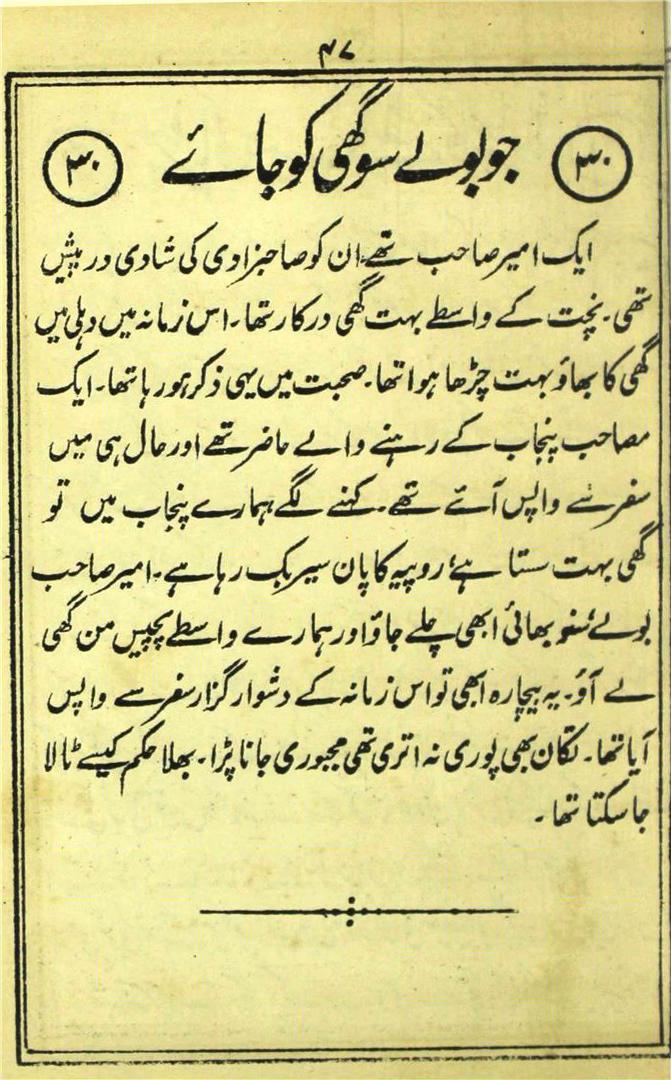 ۴۷
۳۰ جو بولے سو گھی کو جائے ۳۰
ایک امیر صاحب تھے ان کو صاحبزادی کی شادی درپیش
تھی۔ پخت کے واسطے بہت گھی درکار تھا۔ اس زمانہ میں دہلی میں
گھی کا بھاؤ بہت چڑھا ہوا تھا۔ صحبت میں یہی ذکر ہو رہا تھا۔ ایک
مصاحب پنجاب کے رہنے والے حاضر تھے اور حال ہی میں
سفر سے واپس آئے تھے۔ کہنے لگے ہمارے پنجاب میں تو
گھی بہت سستا ہے، روپیہ کا پان سیر بک رہا ہے۔ امیر صاحب
بولے، سنو بھائی ابھی چلے جاؤ اور ہمارے واسطے پچیس من گھی
لے آؤ۔ یہ بیچارہ ابھی تو اس زمانہ کے دشوار گزار سفر سے واپس
آیا تھا۔ تکان بھی پوری نہ اتری تھی مجبوری جانا پڑا۔ بھلا حکم کیسے ٹالا
جا سکتا تھا۔